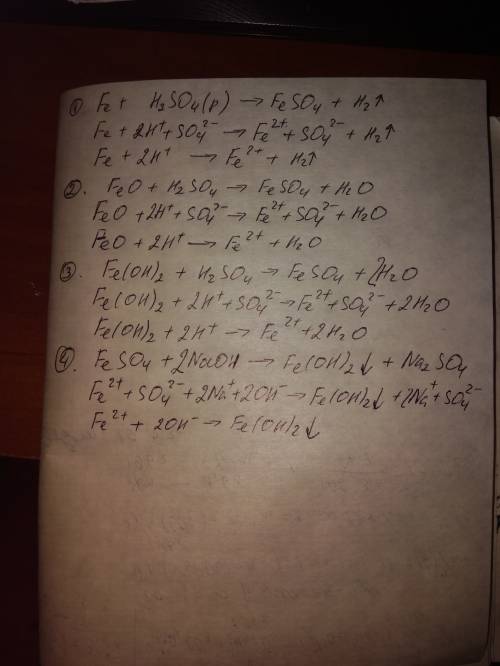 ① Fe + H₂SO₄(р) → FeSO₄ + H₂↑
Fe + 2H⁺ + SO₄²⁻ → Fe²⁺ + SO₄²⁻ + H₂↑
Fe + 2H⁺ → Fe²⁺ + H₂↑
②. FeO + H₂SO₄ → FeSO₄ + H₂O
FeO + 2H⁺ + SO₄²⁻ → Fe²⁺ + SO₄²⁻ + H₂O
FeO + 2H⁺ → Fe²⁺ + H₂O
③. Fe(OH)₂ + H₂SO₄ → FeSO₄ + 2H₂O
Fe(OH)₂ + 2H⁺ + SO₄²⁻ → Fe²⁺ + SO₄²⁻ + 2H₂O
Fe(OH)₂ + 2H⁺ → Fe²⁺ + 2H₂O
④. FeSO₄ + 2NaOH → Fe(OH)₂↓ + Na₂SO₄
Fe²⁺ + SO₄²⁻ + 2Na⁺ + 2OH⁻ → Fe(OH)₂↓ + 2Na⁺ + SO₄²⁻
Fe²⁺ + 2OH⁻ → Fe(OH)₂↓